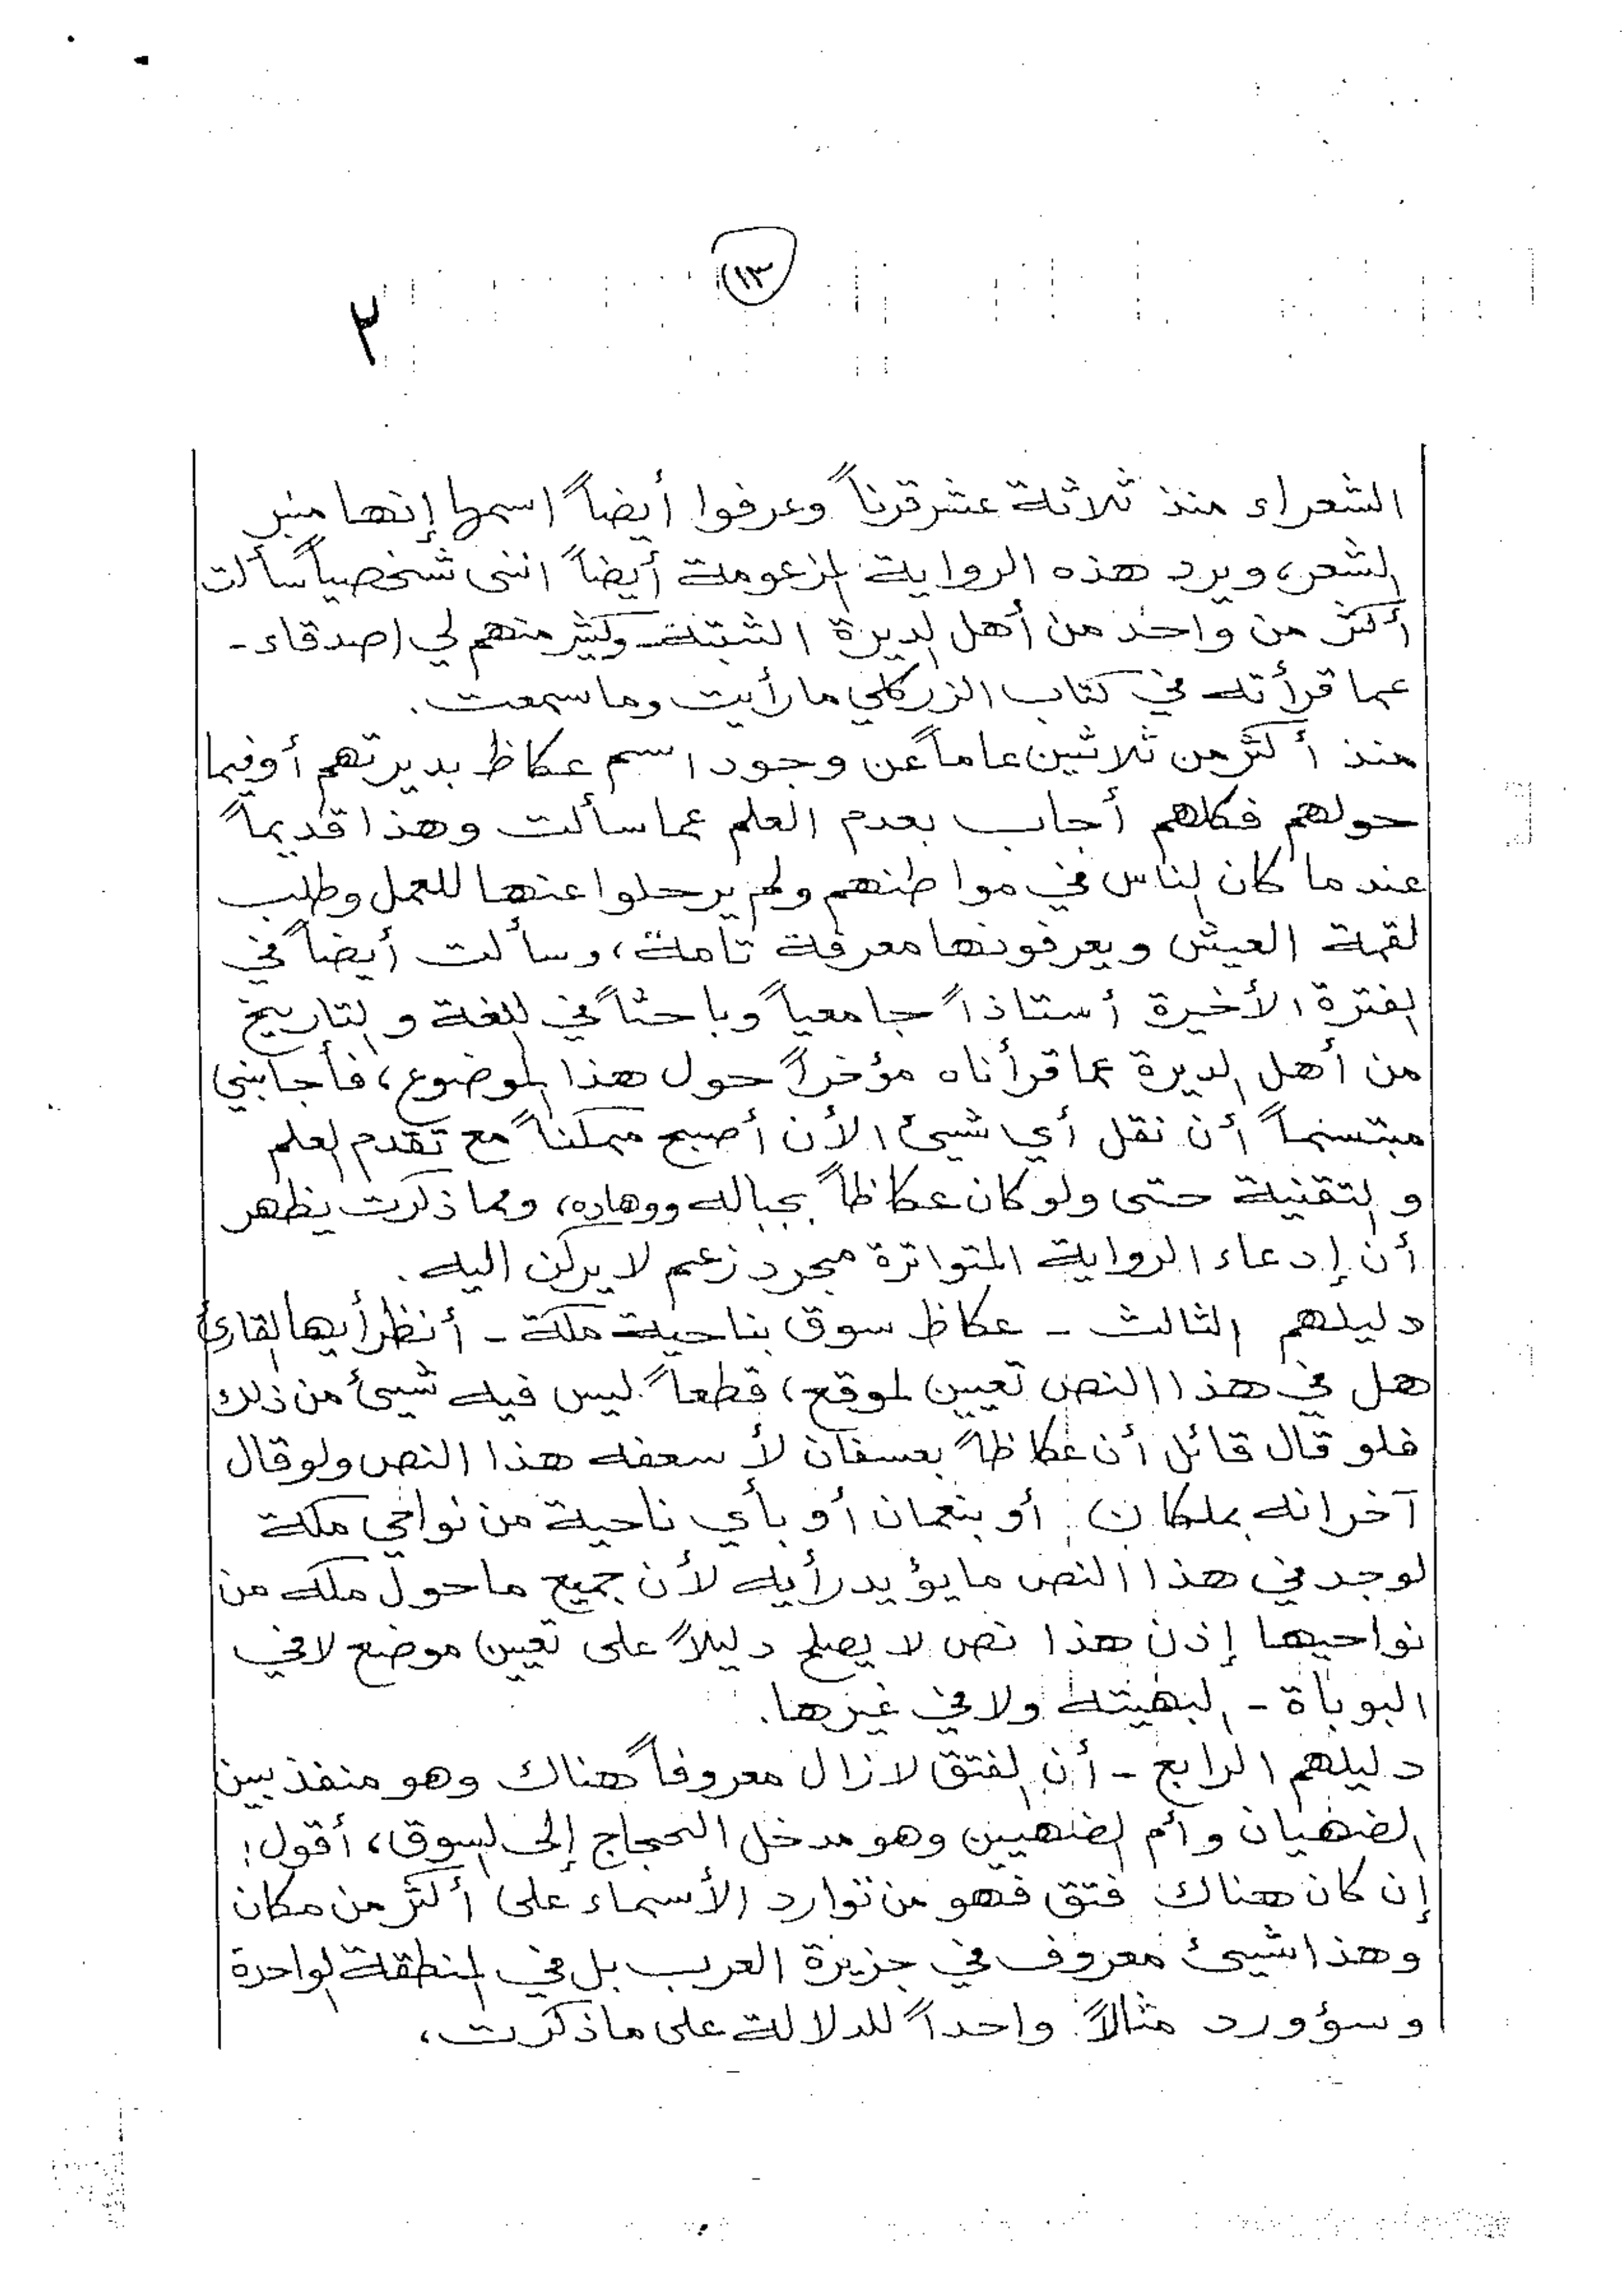 (١٣)
٢
الشعراء منذ ثلاثة عشر قرناً وعرفوا أيضاً اسمها إنها منبر
الشعر، ويرد هذه الرواية المزعومة أيضاً انني شخصياً سألت
أكثر من واحد من أهل الديرة الثبتة وكثير منهم لي اصدقاء -
عما قرأته في كتاب الزركلي ما رأيت وما سمعت .
منذ أكثر من ثلاثين عاماً عن وجود اسم عكاظ بديرتهم أو فيما
حولهم فكلهم أجاب بعدم العلم عما سألت وهذا قديماً
عندما كان الناس في مواطنهم ولم يرحلوا عنها للعمل وطلب
لقمة العيش ويعرفونها معرفة تامة، وسألت أيضاً في
الفترة الأخيرة أستاذاً جامعياً وباحثاً في اللغة والتاريخ
من أهل الديرة عما قرأناه مؤخراً حول هذا الموضوع، فأجابني
مبتسماً أن نقل أي شيئ الأن أصبح ممكناً مع تقدم العلم
والتقنية حتى ولو كان عكاظاً بجباله ووهاده، ومما ذكرت يظهر
أن إدعاء الرواية المتواترة مجرد زعم لا يركن اليه .
دليلهم الثالث - عكاظ سوق بناحية مكة - أنظر أيها القارئ
هل في هذا النص تعيين لموقع، قطعاً ليس فيه شيئ من ذلك
فلو قال قائل أن عكاظاً بعسفان لأسعفه هذا النص ولو قال
آخر انه بملكان أو بنعمان أو بأي ناحية من نواحي مكة
لوجد في هذا النص ما يؤيد رأيه لأن جميع ما حول مكه من
نواحيها إذن هذا نص لا يصلح دليلاً على تعيين موضع لا في
البوباة - البهيته ولا في غيرها.
دليلهم الرابع - أن الفتق لازال معروفاً هناك وهو منفذ بين
الضهيان وأم الضهيين وهو مدخل الحجاج إلى السوق، أقول:
إن كان هناك فتق فهو من توارد الأسماء على أكثر من مكان
وهذا شيئ معروف في جزيرة العرب بل في المنطقة الواحدة
وسؤورد مثالاً واحداً للدلالة على ماذكرت،